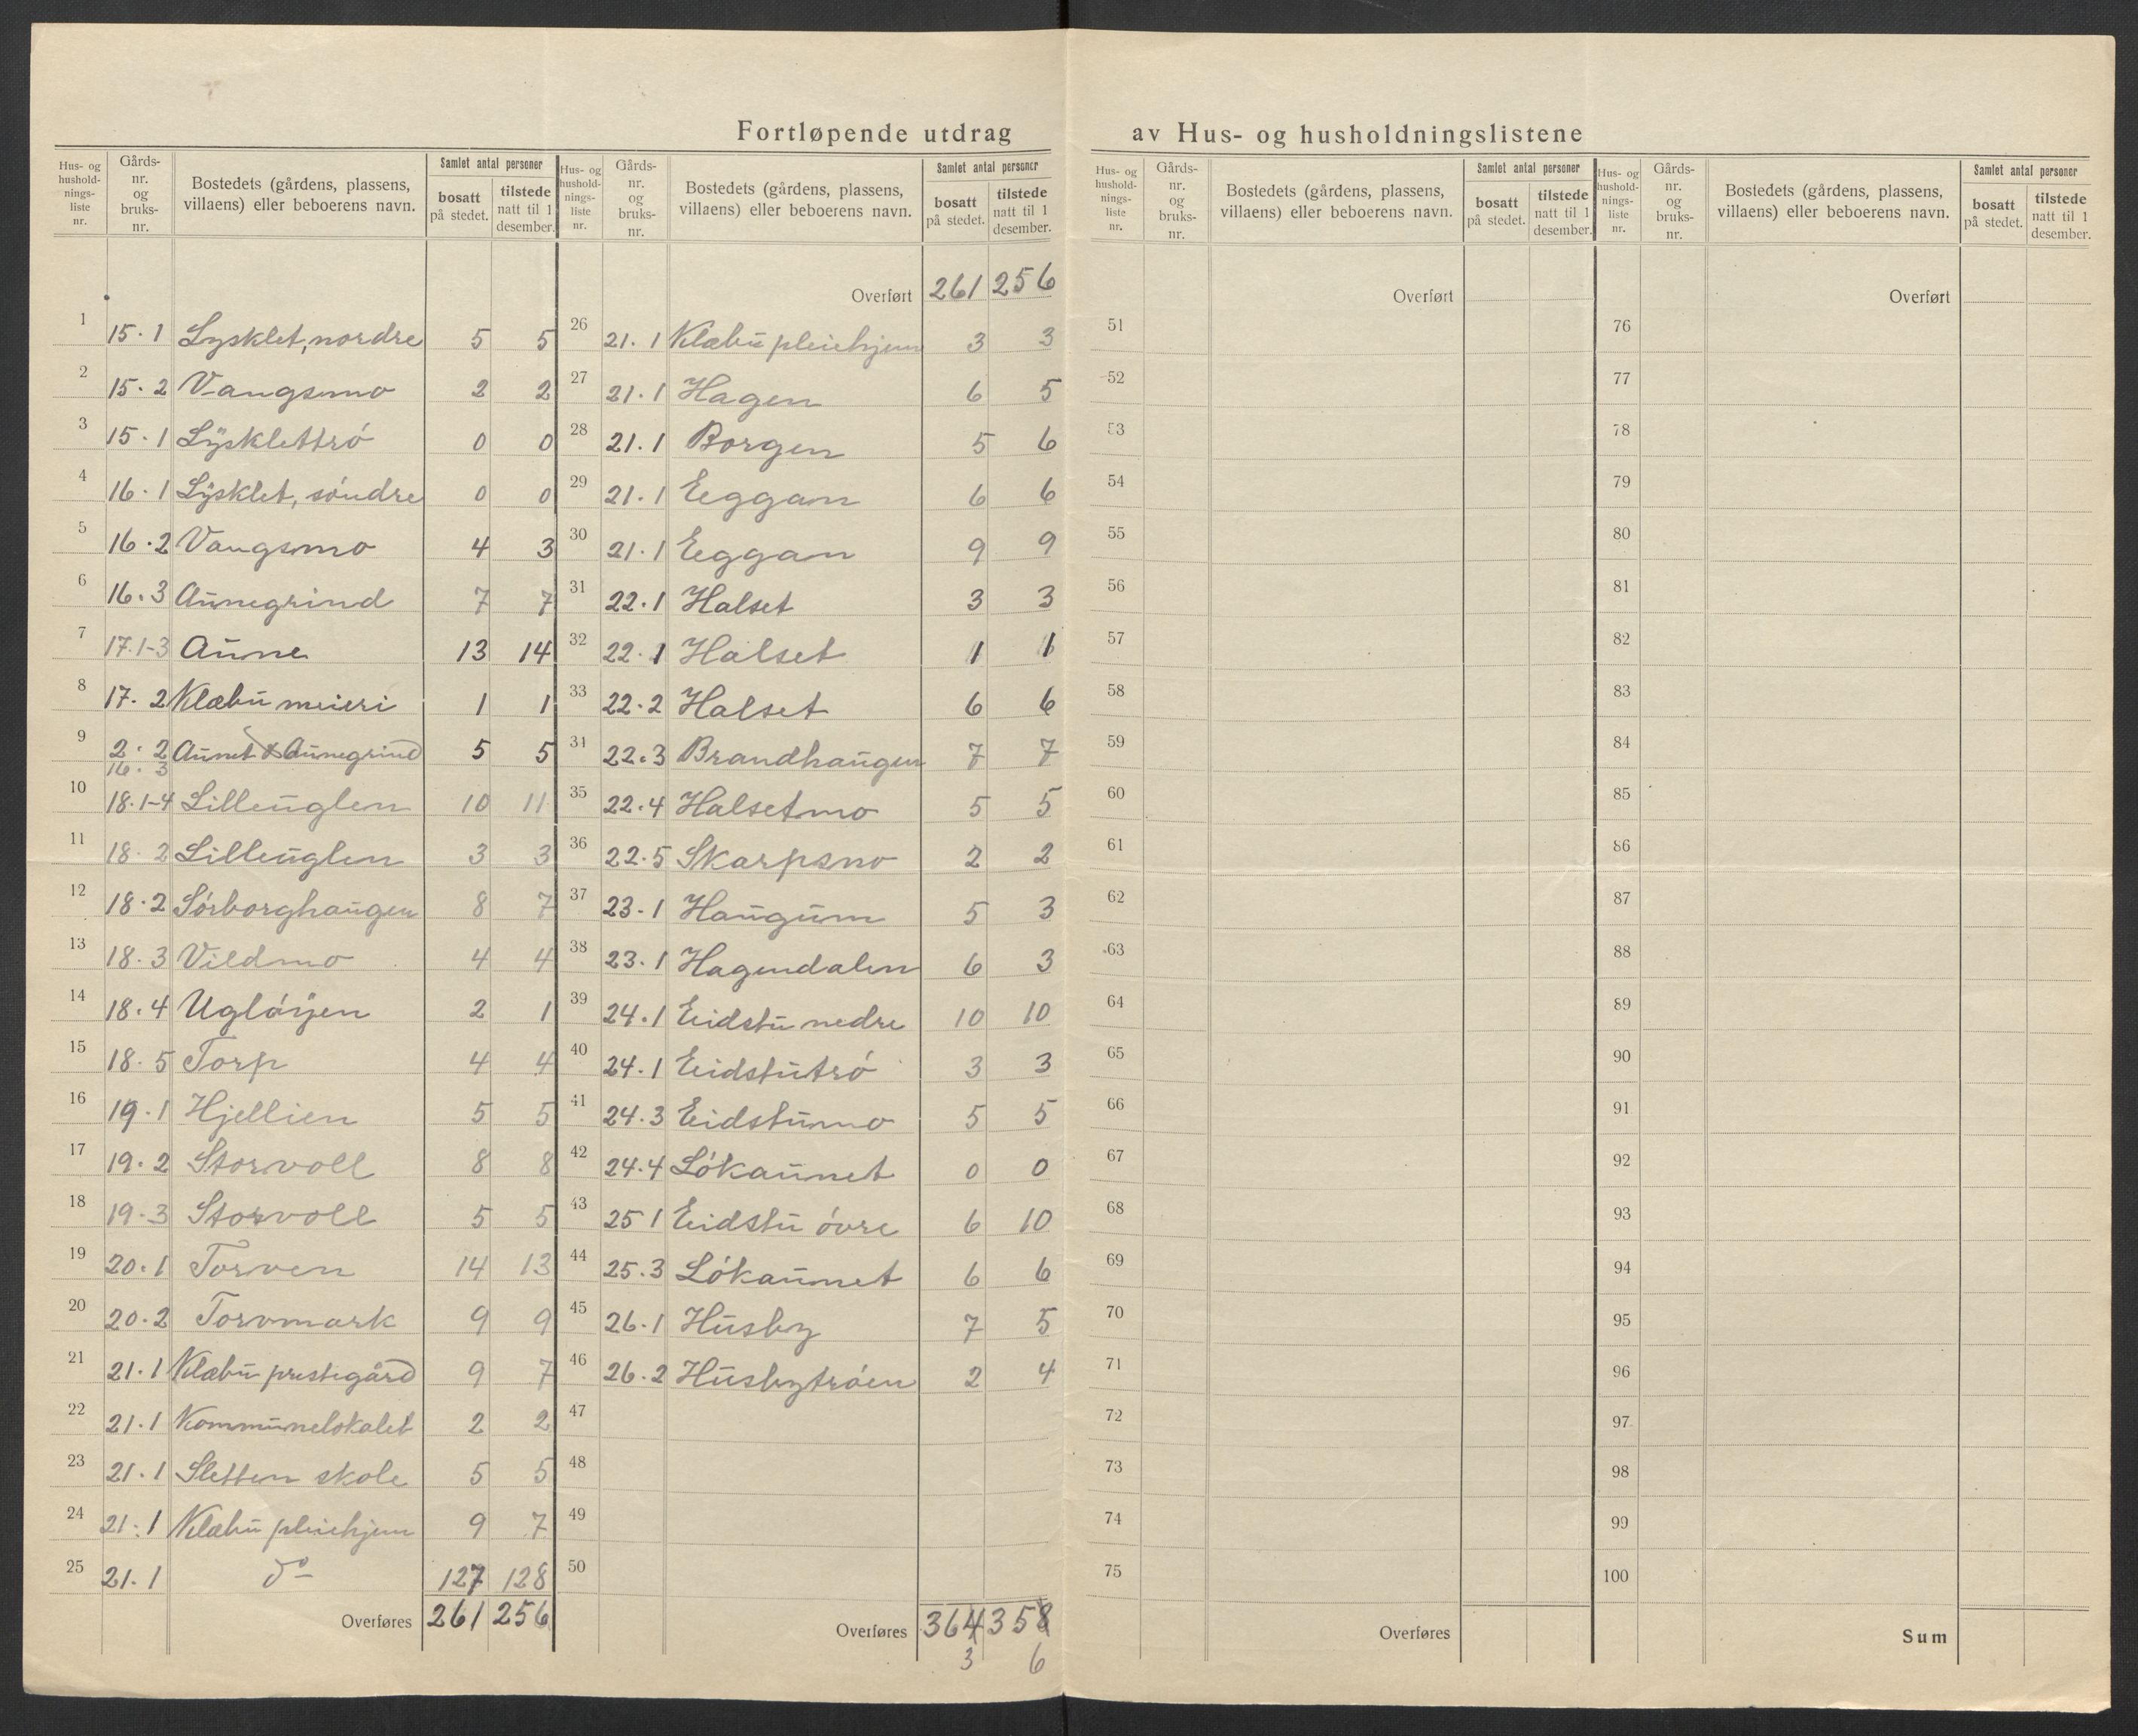 Fortløpende utdrag av Hus- og husholdningslistene
Hus- og husholdningsliste nr. | Gårds-nr. og bruks-nr. | Bostedets (gårdens, plassens, villaens) eller beboerens navn. | Samlet antal personer | bosatt på stedet. | tilstede natt til 1 desember.
1 15.1 Lysklet, nordre 5 5
2 15.2 Vangsmo 2 2
3 15.1 Lÿsklettró 0 0
4 16.1 Lÿsklet, sóndre 0 0
5 16.2 Vangsmo 4 3
6 16.3 Aunegrind 7 7
7 17.1-3 Aune 13 14
8 17.2 Klæbu meieri 1 1
9 2.2 16.3 Aunet & Aunegrind 5 5
10 18.1-4 Lilleuglen 10 11
11 18.2 Lilleuglen 3 3
12 18.2 Sórborghaugen 8 7
13 18.3 Vildmo 4 4
14 18.4 Uglóÿen 2 1
15 18.5 Torp 4 4
16 19.1 Hjellien 5 5
17 19.2 Storvoll 8 8
18 19.3 Storvoll 5 5
19 20.1 Torven 14 13
20 20.2 Torvmark 9 9
21 21.1 Klæbu prestegård 9 7
22 21.1 Kommunelokalet 2 2
23 21.1 Sletten skole 5 5
24 21.1 Klæbu pleiehjem 9 7
25 21.1 do 127 128
Overføres 261 256
Hus- og husholdningsliste nr. | Gårds-nr. og bruks-nr. | Bostedets (gårdens, plassens, villaens) eller beboerens navn. | Samlet antal personer | bosatt på stedet. | tilstede natt til 1 desember.
Overført 261 256
26 21.1 Klæbu pleiehjem 3 3
27 21.1 Hagen 6 5
28 21.1 Borgen 5 6
29 21.1 Eggan 6 6
30 21.1 Eggan 9 9
31 22.1 Halset 3 3
32 22.1 Halset 1 1
33 22.2 Halset 6 6
31 22.3 Brandhaugen 7 7
35 22.4 Halsetmo 5 5
36 22.5 Skarpsno 2 2
37 23.1 Haugum 5 3
38 23.1 Hagendalen 6 3
39 24.1 Eidstu nedre 10 10
40 24.1 Eidstutró 3 3
41 24.3 Eidstumo 5 5
42 24.4 Lókaunet 0 0
43 25 1 Eidstu óvre 6 10
44 25.3 Lókaunet 6 6
45 26.1 Husby 7 5
46 26.2 Husbytróen 2 4
47
48
49
50
Overføres 364 358
3 6
Hus- og husholdningsliste nr. | Gårds-nr. og bruks-nr. | Bostedets (gårdens, plassens, villaens) eller beboerens navn. | Samlet antal personer | bosatt på stedet. | tilstede natt til 1 desember.
Overført
51
52
53
54
55
56
57
58
59
60
61
62
63
64
65
66
67
68
69
70
71
72
73
74
75
Overføres
Hus- og husholdningsliste nr. | Gårds-nr. og bruks-nr. | Bostedets (gårdens, plassens, villaens) eller beboerens navn. | Samlet antal personer | bosatt på stedet. | tilstede natt til 1 desember.
Overført
76
77
78
79
80
81
82
83
84
85
86
87
88
89
90
91
92
93
94
95
96
97
98
99
100
Sum